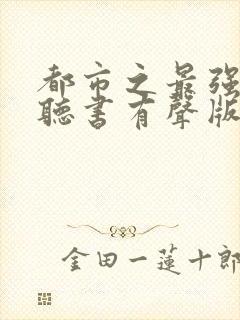 都市之最强
聽書有聲版
金田一蓮十郎